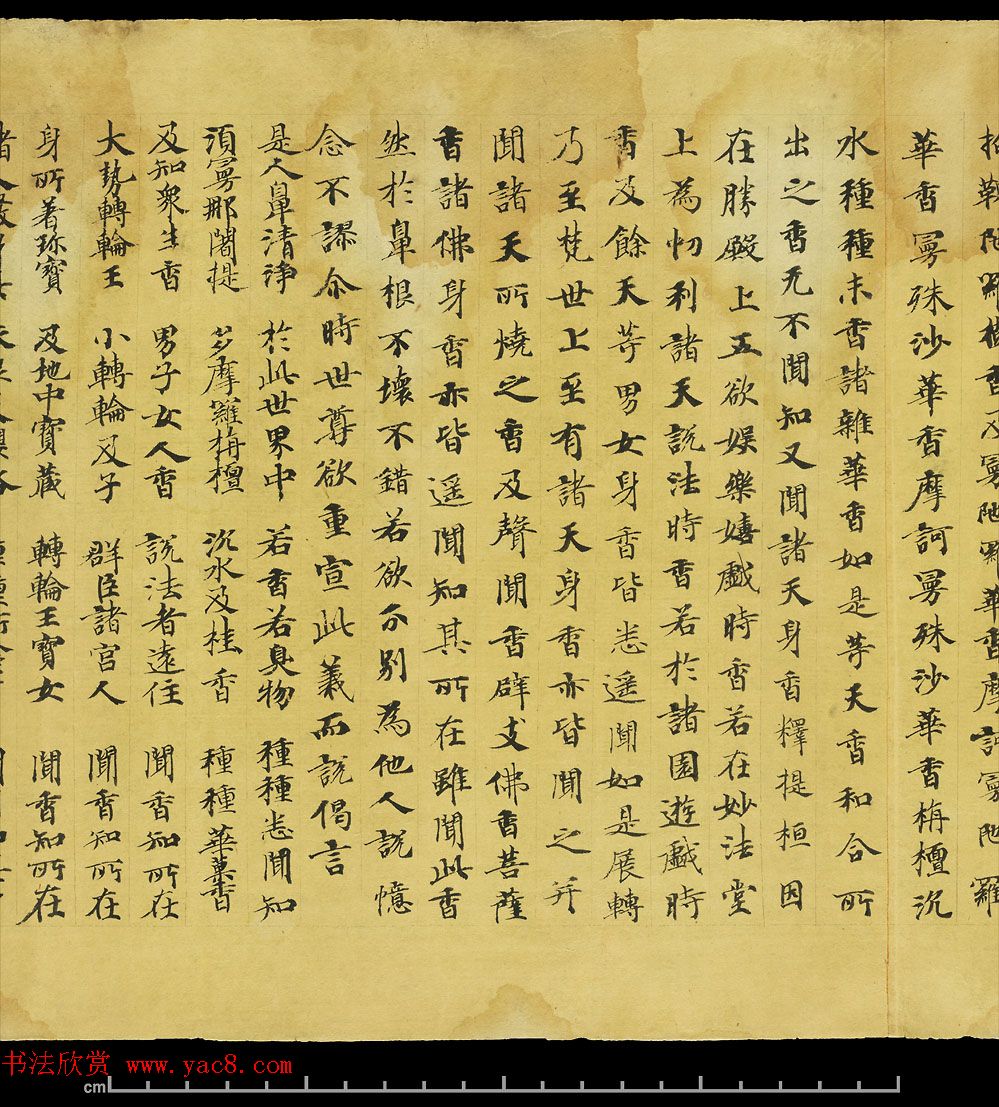 拘鞞陁羅樹香及曼陁羅華香摩訶曼陁羅
華香曼殊沙華香摩訶曼殊沙華香栴檀沉
水種種末香諸雜華香如是等天香和合所
出之香无不聞知又聞諸天身香釋提桓因
在勝殿上五欲娛樂嬉戲時香若在妙法堂
上為忉利諸天說法時香若於諸園遊戲時
香及餘天等男女身香皆悉遥聞如是展轉
乃至梵世上至有諸天身香亦皆聞之并
聞諸天所燒之香及聲聞香辟支佛香菩薩
香諸佛身香亦皆遥聞知其所在雖聞此香
然於鼻根不壞不錯若欲分別為他人說憶
念不謬尒時世尊欲重宣此義而說偈言
是人鼻清淨 於此世界中 若香若臭物 種種悉聞知
須曼那闍提 多摩羅栴檀 沉水及桂香 種種華菓香
及知衆生香 男子女人香 說法者遠住 聞香知所在
大勢轉輪王 小轉輪及子 群臣諸宮人 聞香知所在
身所著珎寶 及地中寶藏 轉輪王寶女 聞香知所在
书法欣赏 www.yac8.com
cm